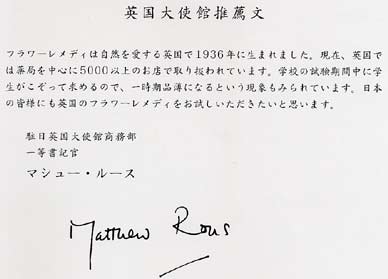 英国大使館推薦文
フラワーレメディは自然を愛する英国で1936年に生まれました。現在、英国で
は薬局を中心に5000以上のお店で取り扱われています。学校の試験期間中に学
生がこぞって求めるので、一時期品薄になるという現象もみられています。日本
の皆様にも英国のフラワーレメディをお試しいただきたいと思います。
駐日英国大使館商務部
一等書記官
マシュー・ルース
Matthew Rous